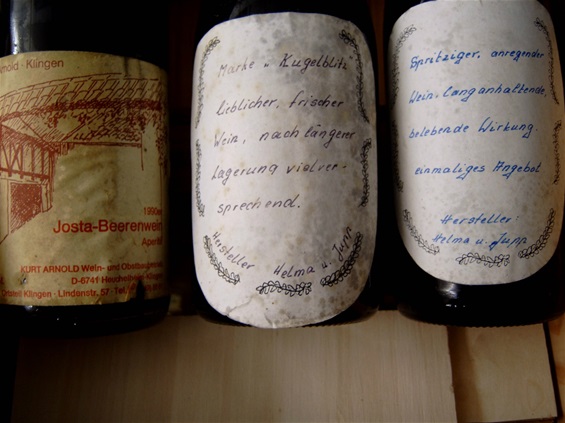 Arnold · Klingen
1990er
Josta-Beerenwein
Aperitif
KURT ARNOLD Wein- und Obstbau
D-6741 Heuchelheim-Klingen
Ortsteil Klingen - Lindenstr. 57 - Tel.
Marke „Kugelblitz"
lieblicher, frischer
Wein, nach längerer
Lagerung vielver-
sprechend.
Hersteller Helma u. Jupp
Spritziger, anregender
Wein, langanhaltende,
belebende Wirkung.
einmaliges Angebot
Hersteller:
Helma u. Jupp